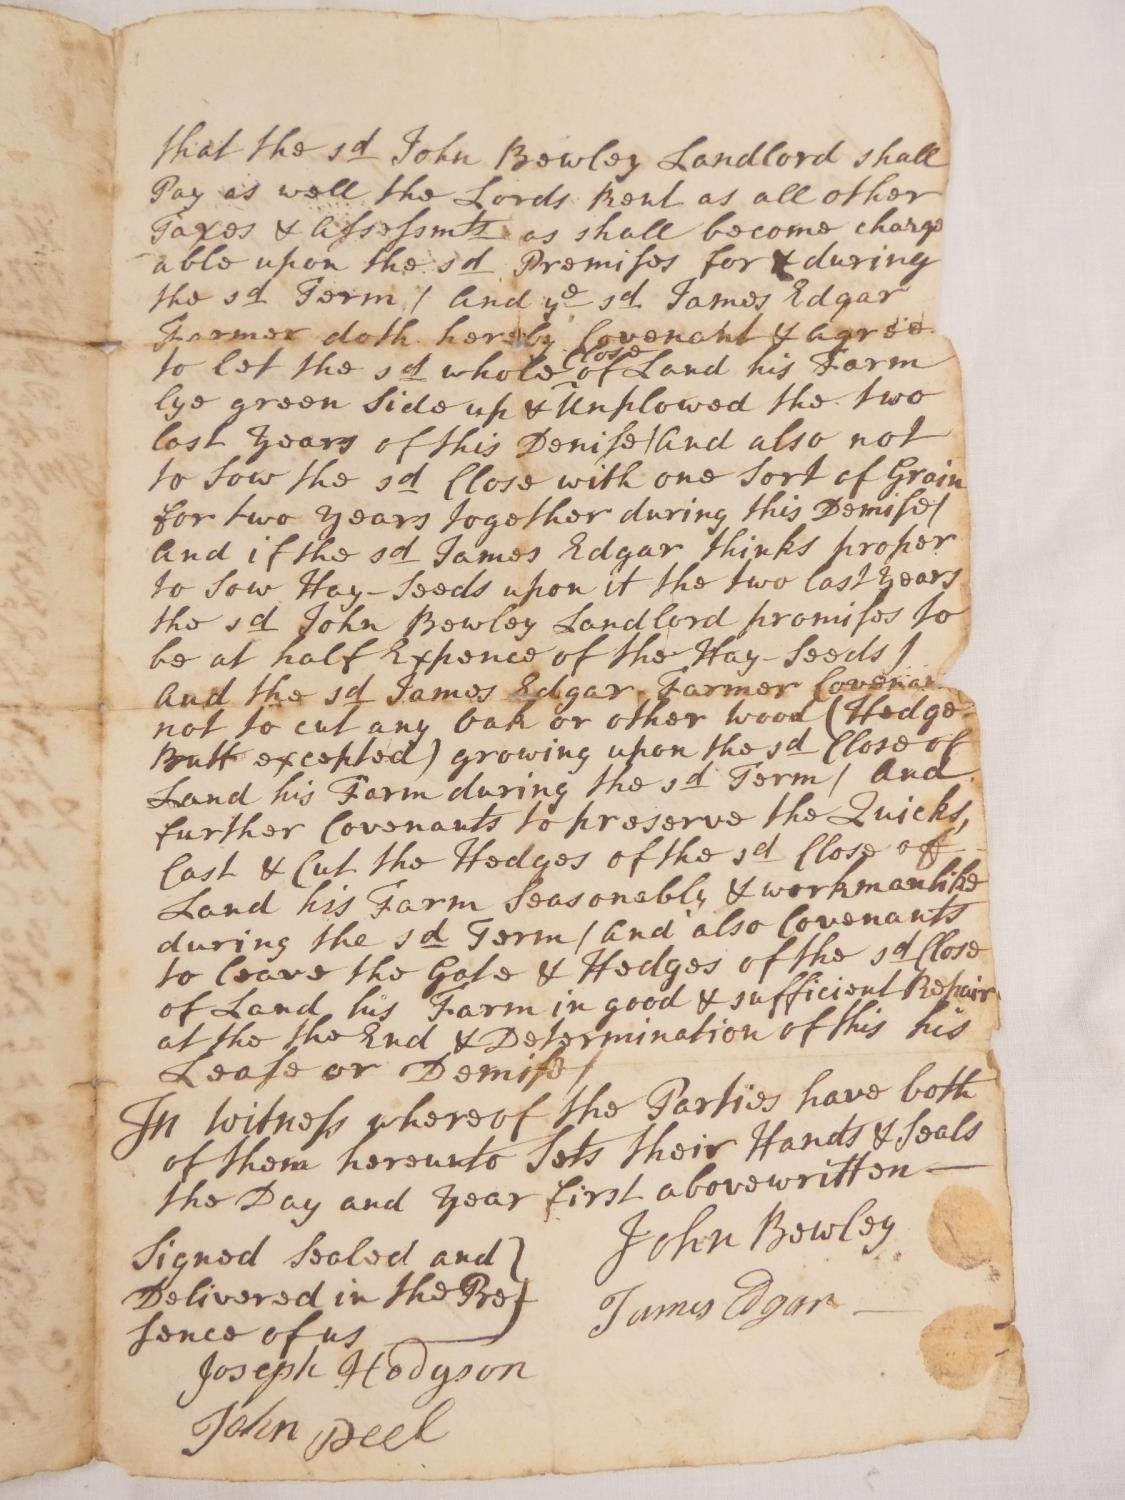 that the sd John Bewley Landlord shall
Pay as well the Lords Rent as all other
Taxes & Aſseſsmts as shall become charge
able upon the sd Premiſes for & during
the sd Term / And ye sd James Edgar
Farmer doth hereby Covenant & agree
to let the sd whole Close of Land his Farm
lye green Side up & Unplowed the two
last Years of this Demiſe / And also not
to Sow the sd Close with one Sort of Grain
for two Years together during this Demiſe /
And if the sd James Edgar thinks proper
to Sow Hay-Seeds upon it the two last Years
the sd John Bewley Landlord promiſes to
be at half Expence of the Hay-Seeds /
And the sd James Edgar Farmer Covenan
not to cut any Oak or other Wood (Hedge-
Butt excepted) growing upon the sd Close of
Land his Farm during the sd Term / And
further Covenants to preserve the Quicks,
Cast & Cut the Hedges of the sd Close of
Land his Farm Seasonably & workmanlike
during the sd Term / And also Covenants
to leave the Gate & Hedges of the sd Close
of Land his Farm in good & sufficient Repair
at the the End & Determination of this his
Leaſe or Demiſe /
In Witneſs whereof the Parties have both
of them hereunto Sets their Hands & Seals
the Day and Year first abovewritten —
John Bewley
James Edgar —
Signed Sealed and
Delivered in the Pre
ſence of us
Joseph Hodgson
John Peel